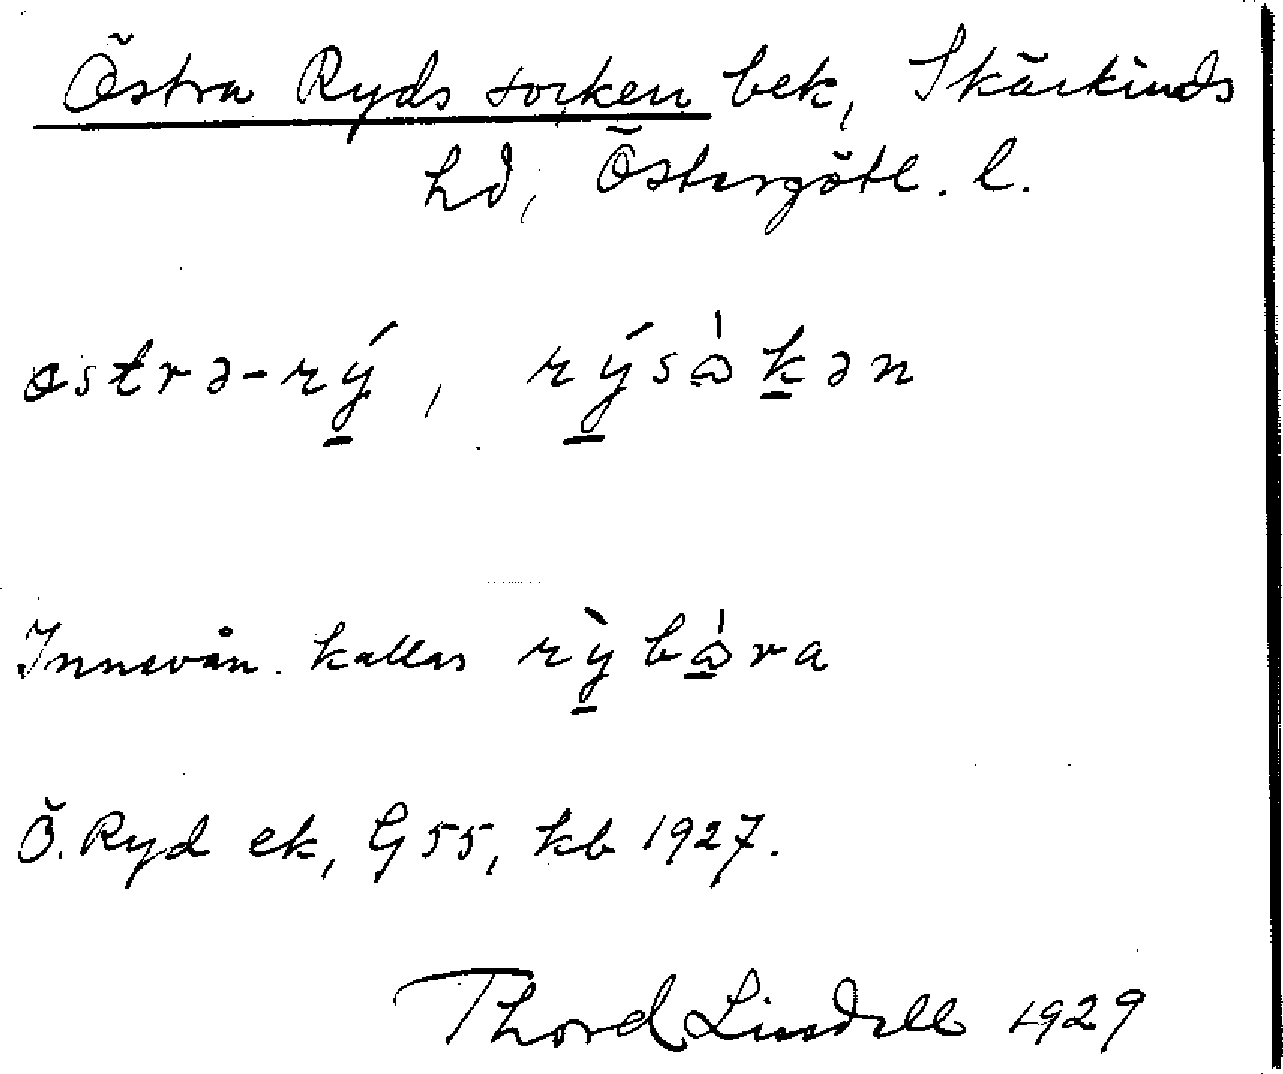 Östra Ryds socken bek, Skärkinds
hd, Östergötl. l.
östrə-rý̱, rý̱sὰḵən
Innevån. kallas rỳ̱bà̱ra
Ö. Ryd ek, G 55, kb 1927.
Thord Lindell 1929